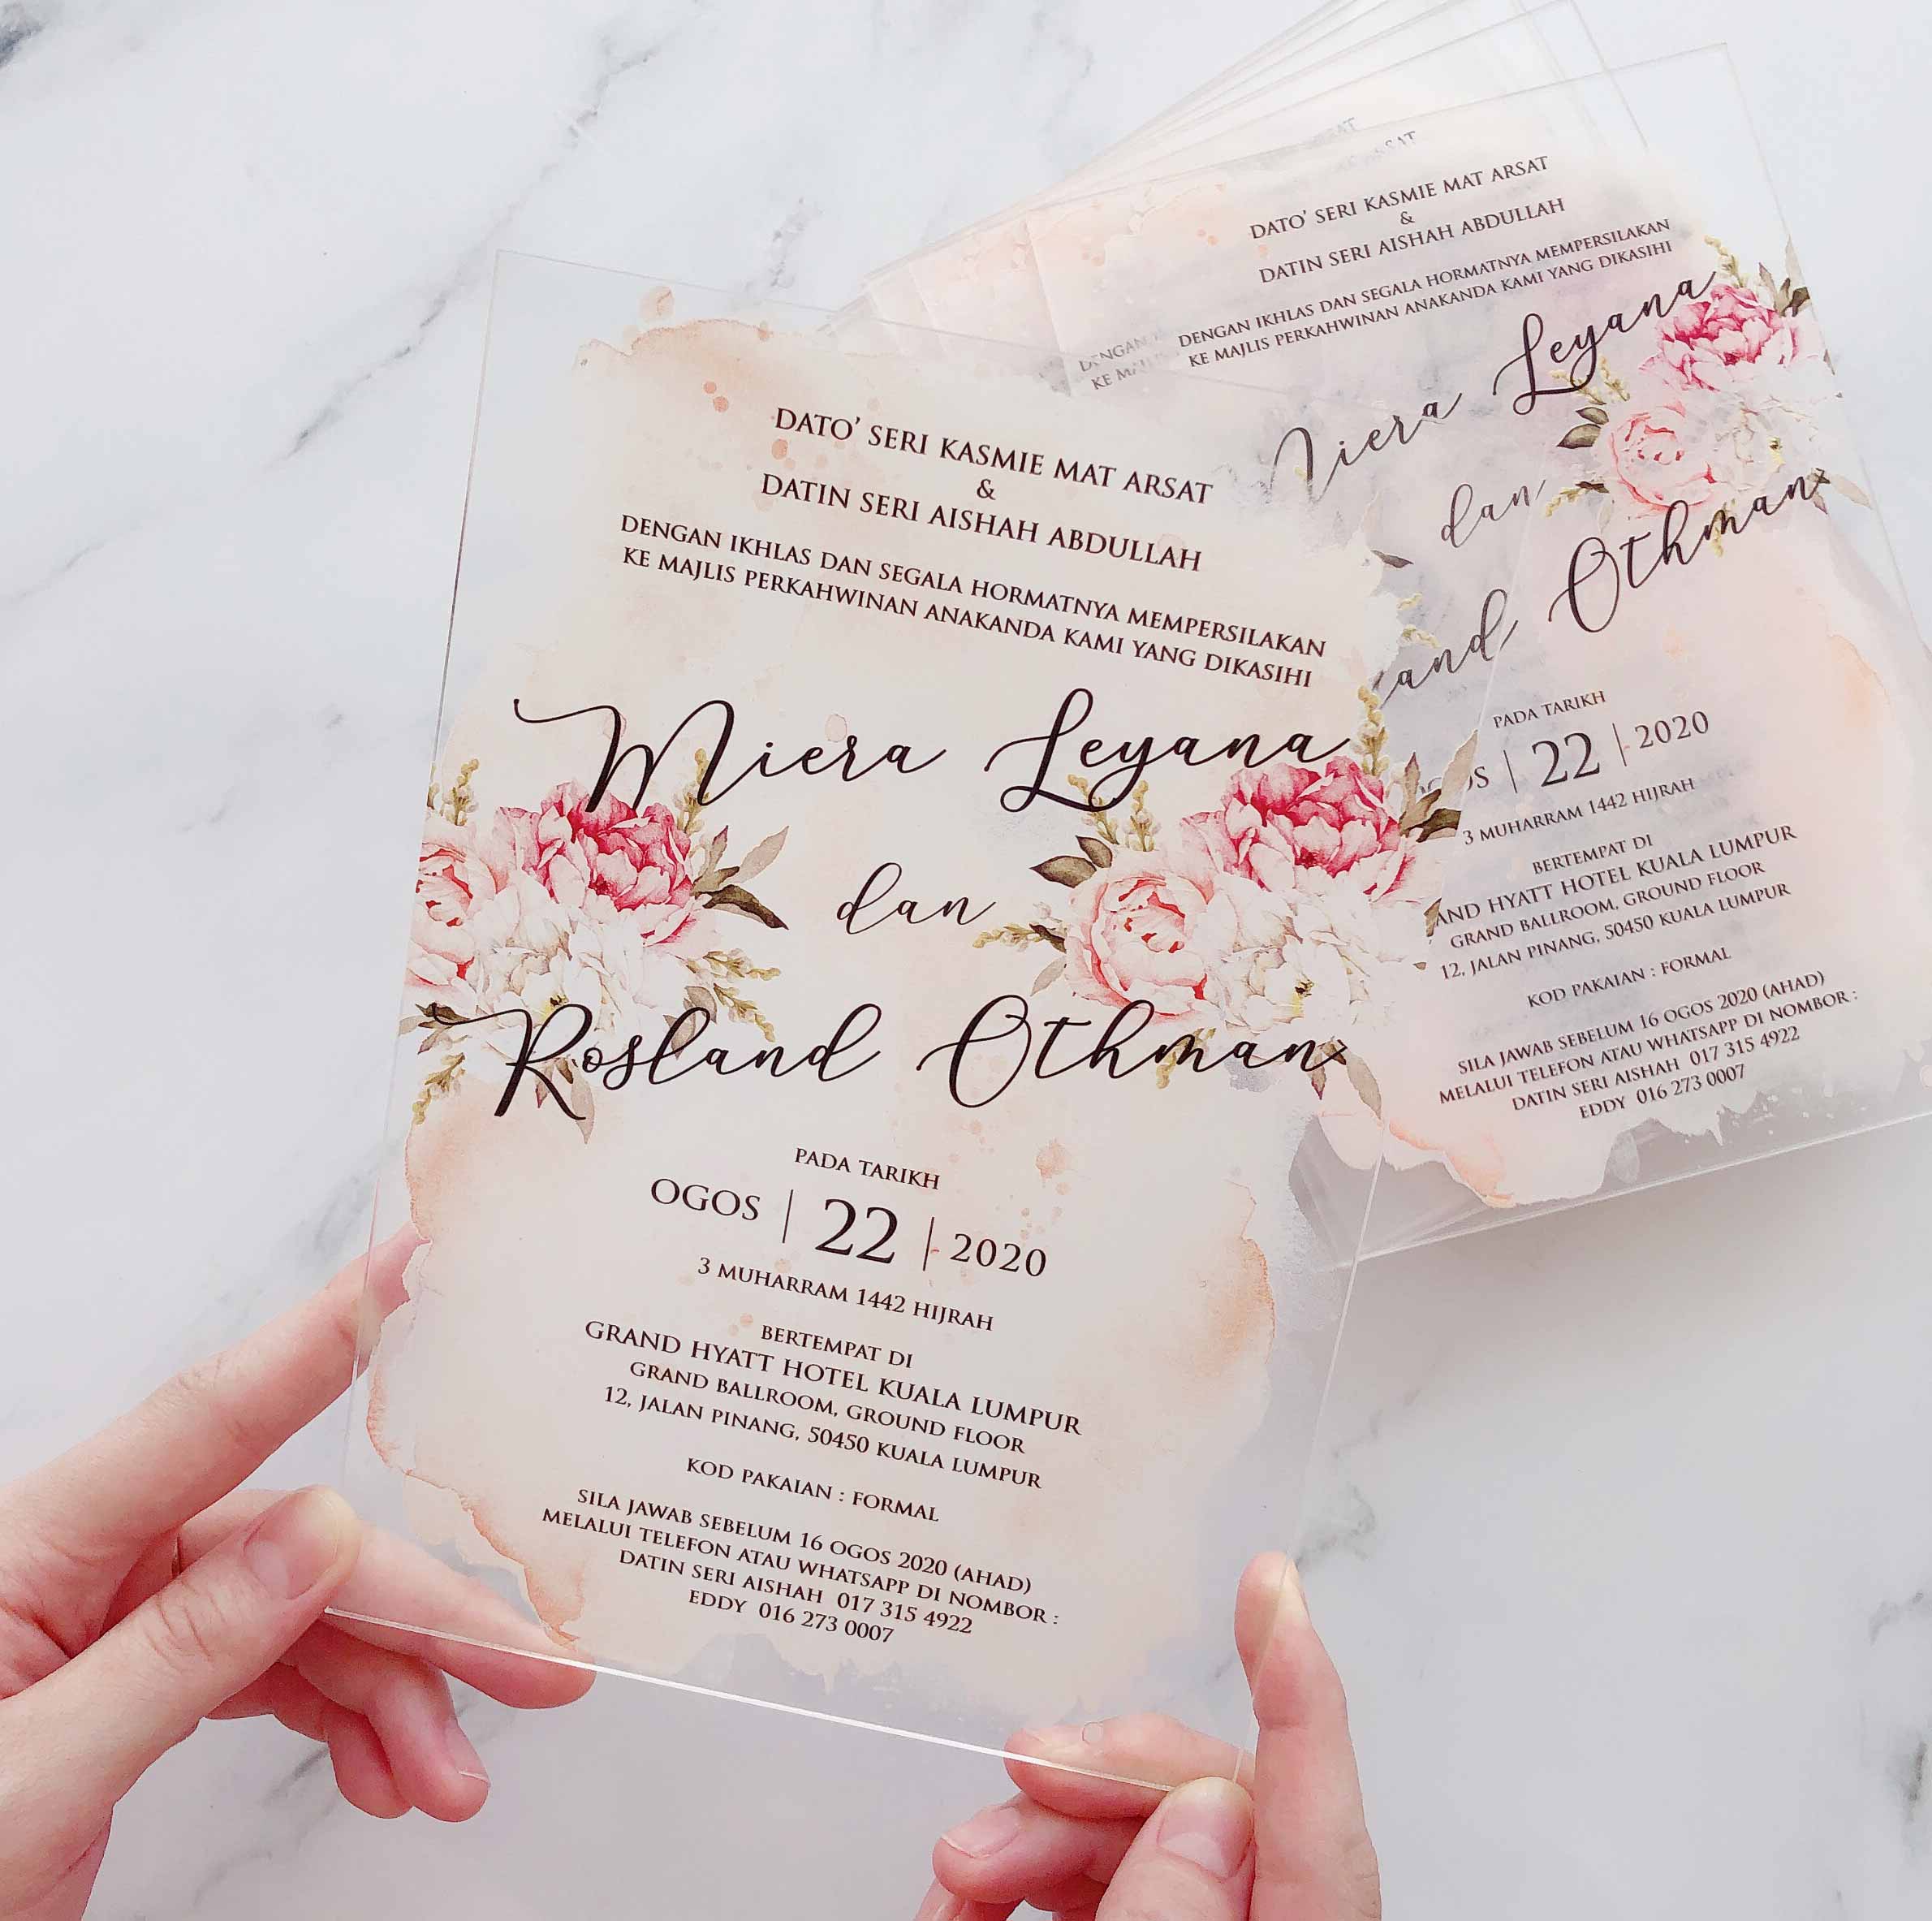 DATO' SERI KASMIE MAT ARSAT
&
DATIN SERI AISHAH ABDULLAH
DENGAN IKHLAS DAN SEGALA HORMATNYA MEMPERSILAKAN
KE MAJLIS PERKAHWINAN ANAKANDA KAMI YANG DIKASIHI
Miera Leyana
dan
Rosland Othman
PADA TARIKH
OGOS | 22 | 2020
3 MUHARRAM 1442 HIJRAH
BERTEMPAT DI
GRAND HYATT HOTEL KUALA LUMPUR
GRAND BALLROOM, GROUND FLOOR
12, JALAN PINANG, 50450 KUALA LUMPUR
KOD PAKAIAN : FORMAL
SILA JAWAB SEBELUM 16 OGOS 2020 (AHAD)
MELALUI TELEFON ATAU WHATSAPP DI NOMBOR :
DATIN SERI AISHAH 017 315 4922
EDDY 016 273 0007
DATO' SERI KASMIE MAT ARSAT
&
DATIN SERI AISHAH ABDULLAH
DENGAN IKHLAS DAN SEGALA HORMATNYA MEMPERSILAKAN
KE MAJLIS PERKAHWINAN ANAKANDA KAMI YANG DIKASIHI
Miera Leyana
dan
Othman
PADA TARIKH
| 22 | 2020
3 MUHARRAM 1442 HIJRAH
BERTEMPAT DI
HYATT HOTEL KUALA LUMPUR
GRAND BALLROOM, GROUND FLOOR
12, JALAN PINANG, 50450 KUALA LUMPUR
KOD PAKAIAN : FORMAL
SILA JAWAB SEBELUM 16 OGOS 2020 (AHAD)
MELALUI TELEFON ATAU WHATSAPP DI NOMBOR :
DATIN SERI AISHAH 017 315 4922
EDDY 016 273 0007